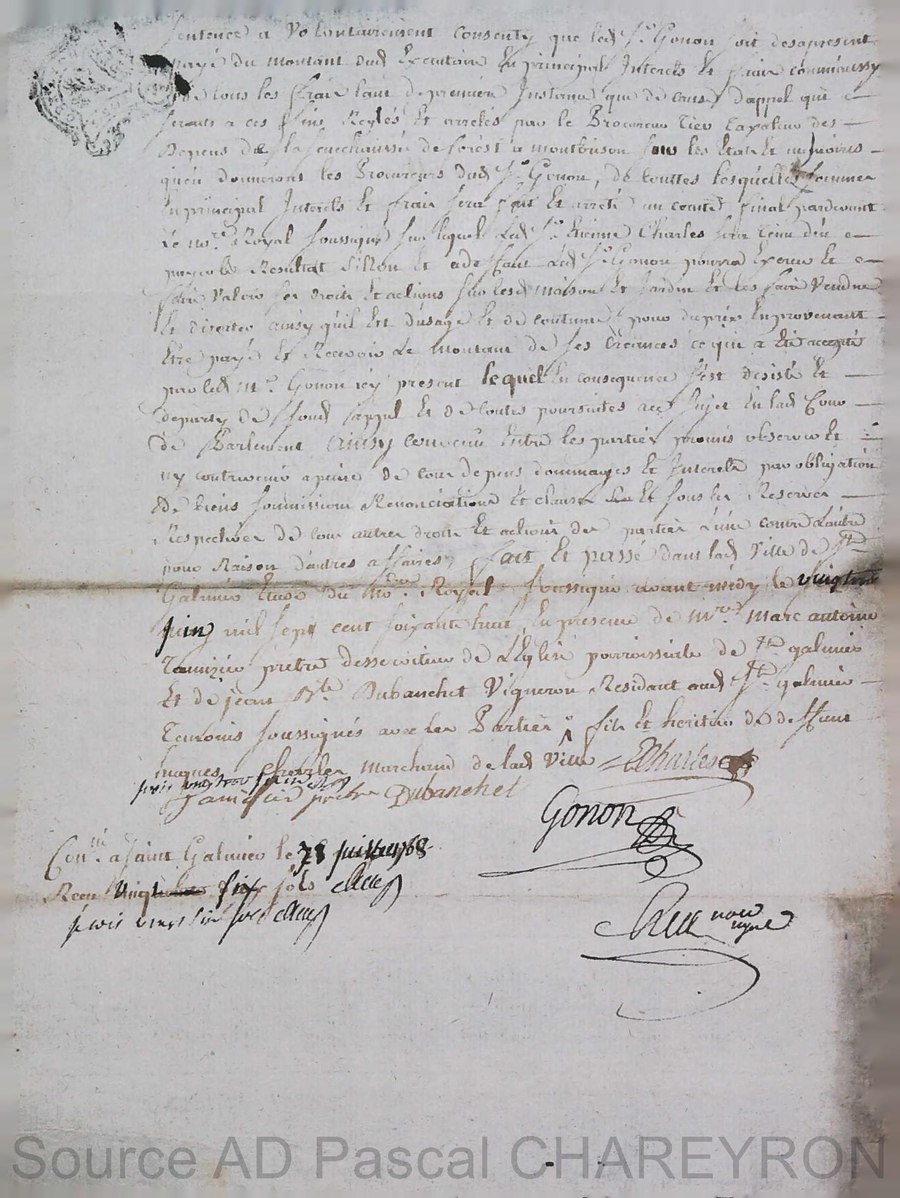 sentence a volontairement consenty que led Sr Gonon soit desapresent
payé du montant dud Executoire en principal Interets et faire
de tous les fraix tant de premier Instance que de cause d'appel qui
seront a ces fins Reglés et arretés par le Procureur Tiers Taxateur des
Depens de la senechaussée de forest a montbrison sous les Etats et memoires
qu'en donneront les Procureurs dud Sr Gonon, de touttes lesquelles sommes
en principal Interets et fraix sera fait et arreté un comte final pardevant
le nore Royal soussigné sur lequel led Sr Etienne Charles sera tenu d'en
payer le Resultat sinon et a deffaut led Sr Gonon pourra Exercer et
faire valoir ses droits et actions sur lesd maison et Jardin et les faire vendre
et discuter ainsy qu'il est d'usage et de coutume pour du prix en provenant
Être payé et Recevoir le montant de ses Créances ce qui a Eté accepté
par led Mr Gonon icy present lequel en consequence s'est desisté et
departy de sond appel et de toutes poursuites a ce sujet en lad Cour
de Parlement ainsy convenu entre les parties promis observer et
ny contrevenir a peine de tous depens dommages et Interets par obligation
de biens soumissions Renonciations et clauses et sous les Reserves
Respectives de tous autres droits et actions des parties l'une contre l'autre
pour Raison d'autres affaires, fait et passé dans lad ville de St
Galmier Etude du nore Royal soussigné avant midy le vingt
juin mil sept cent soixante huit, en presence de mre marc antoine
Tamizier prêtre desserviteur de L'Eglise parroissiale de St galmier
Et de jean Bte Dubanchet Vigneron Residant aud St galmier
Temoins soussignés avec les Parties fils et heritier de deffunt
jacques Charles marchand de lad Ville ECharles
Tamizier prêtre Dubanchet
Gonon
Conlé a Saint Galmier le 28 juin 1768
Receu vingt six sols
nore royal
Source AD Pascal CHAREYRON